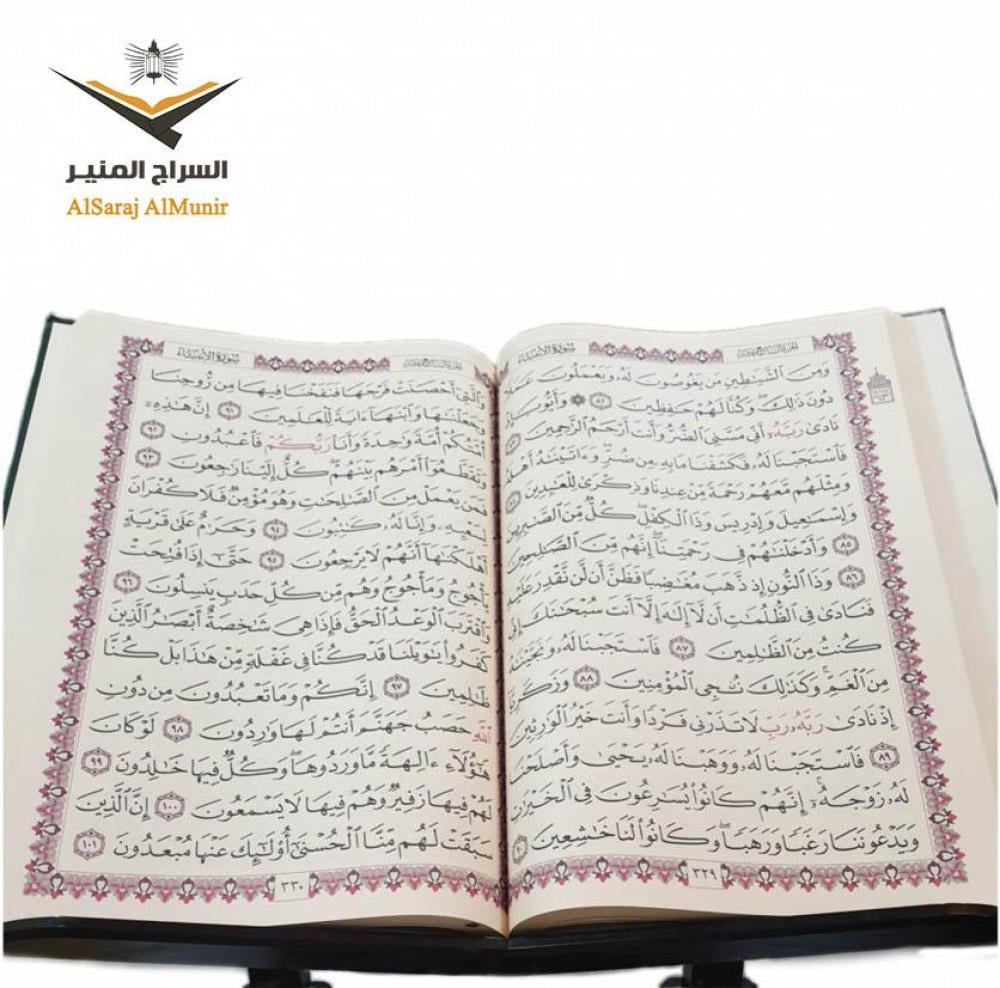 السراج المنير
AlSaraj AlMunir
سورة الأنبياء
وَمِنَ ٱلشَّيَٰطِينِ مَن يَغُوصُونَ لَهُۥ وَيَعْمَلُونَ عَمَلًا
دُونَ ذَٰلِكَ ۖ وَكُنَّا لَهُمْ حَٰفِظِينَ ٨٢ ۞ وَأَيُّوبَ إِذْ
نَادَىٰ رَبَّهُۥٓ أَنِّى مَسَّنِىَ ٱلضُّرُّ وَأَنتَ أَرْحَمُ ٱلرَّٰحِمِينَ
فَٱسْتَجَبْنَا لَهُۥ فَكَشَفْنَا مَا بِهِۦ مِن ضُرٍّ ۖ وَءَاتَيْنَٰهُ أَهْلَهُۥ
وَمِثْلَهُم مَّعَهُمْ رَحْمَةً مِّنْ عِندِنَا وَذِكْرَىٰ لِلْعَٰبِدِينَ
وَإِسْمَٰعِيلَ وَإِدْرِيسَ وَذَا ٱلْكِفْلِ ۖ كُلٌّ مِّنَ ٱلصَّٰبِرِينَ
٨٥ وَأَدْخَلْنَٰهُمْ فِى رَحْمَتِنَآ ۖ إِنَّهُم مِّنَ ٱلصَّٰلِحِينَ
٨٦ وَذَا ٱلنُّونِ إِذ ذَّهَبَ مُغَٰضِبًا فَظَنَّ أَن لَّن نَّقْدِرَ عَلَيْهِ
فَنَادَىٰ فِى ٱلظُّلُمَٰتِ أَن لَّآ إِلَٰهَ إِلَّآ أَنتَ سُبْحَٰنَكَ إِنِّى
كُنتُ مِنَ ٱلظَّٰلِمِينَ ٨٧ فَٱسْتَجَبْنَا لَهُۥ وَنَجَّيْنَٰهُ
مِنَ ٱلْغَمِّ ۚ وَكَذَٰلِكَ نُۨجِى ٱلْمُؤْمِنِينَ ٨٨ وَزَكَرِيَّآ
إِذْ نَادَىٰ رَبَّهُۥ رَبِّ لَا تَذَرْنِى فَرْدًا وَأَنتَ خَيْرُ ٱلْوَٰرِثِينَ
٨٩ فَٱسْتَجَبْنَا لَهُۥ وَوَهَبْنَا لَهُۥ يَحْيَىٰ وَأَصْلَحْنَا
لَهُۥ زَوْجَهُۥٓ ۚ إِنَّهُمْ كَانُوا۟ يُسَٰرِعُونَ فِى ٱلْخَيْرَٰتِ
وَيَدْعُونَنَا رَغَبًا وَرَهَبًا ۖ وَكَانُوا۟ لَنَا خَٰشِعِينَ
٣٢٩
سورة الأنبياء
وَٱلَّتِىٓ أَحْصَنَتْ فَرْجَهَا فَنَفَخْنَا فِيهَا مِن رُّوحِنَا
وَجَعَلْنَٰهَا وَٱبْنَهَآ ءَايَةً لِّلْعَٰلَمِينَ ٩١ إِنَّ هَٰذِهِۦٓ
أُمَّتُكُمْ أُمَّةً وَٰحِدَةً وَأَنَا۠ رَبُّكُمْ فَٱعْبُدُونِ ٩٢
وَتَقَطَّعُوٓا۟ أَمْرَهُم بَيْنَهُمْ ۖ كُلٌّ إِلَيْنَا رَٰجِعُونَ ٩٣
فَمَن يَعْمَلْ مِنَ ٱلصَّٰلِحَٰتِ وَهُوَ مُؤْمِنٌ فَلَا كُفْرَانَ
لِسَعْيِهِۦ وَإِنَّا لَهُۥ كَٰتِبُونَ ٩٤ وَحَرَٰمٌ عَلَىٰ قَرْيَةٍ
أَهْلَكْنَٰهَآ أَنَّهُمْ لَا يَرْجِعُونَ ٩٥ حَتَّىٰٓ إِذَا فُتِحَتْ
يَأْجُوجُ وَمَأْجُوجُ وَهُم مِّن كُلِّ حَدَبٍ يَنسِلُونَ ٩٦
وَٱقْتَرَبَ ٱلْوَعْدُ ٱلْحَقُّ فَإِذَا هِىَ شَٰخِصَةٌ أَبْصَٰرُ ٱلَّذِينَ
كَفَرُوا۟ يَٰوَيْلَنَا قَدْ كُنَّا فِى غَفْلَةٍ مِّنْ هَٰذَا بَلْ كُنَّا
ظَٰلِمِينَ ٩٧ إِنَّكُمْ وَمَا تَعْبُدُونَ مِن دُونِ
ٱللَّهِ حَصَبُ جَهَنَّمَ أَنتُمْ لَهَا وَٰرِدُونَ ٩٨ لَوْ كَانَ
هَٰٓؤُلَآءِ ءَالِهَةً مَّا وَرَدُوهَا ۖ وَكُلٌّ فِيهَا خَٰلِدُونَ ٩٩
لَهُمْ فِيهَا زَفِيرٌ وَهُمْ فِيهَا لَا يَسْمَعُونَ ١٠٠ إِنَّ ٱلَّذِينَ
سَبَقَتْ لَهُم مِّنَّا ٱلْحُسْنَىٰٓ أُو۟لَٰٓئِكَ عَنْهَا مُبْعَدُونَ ١٠١
٣٣٠